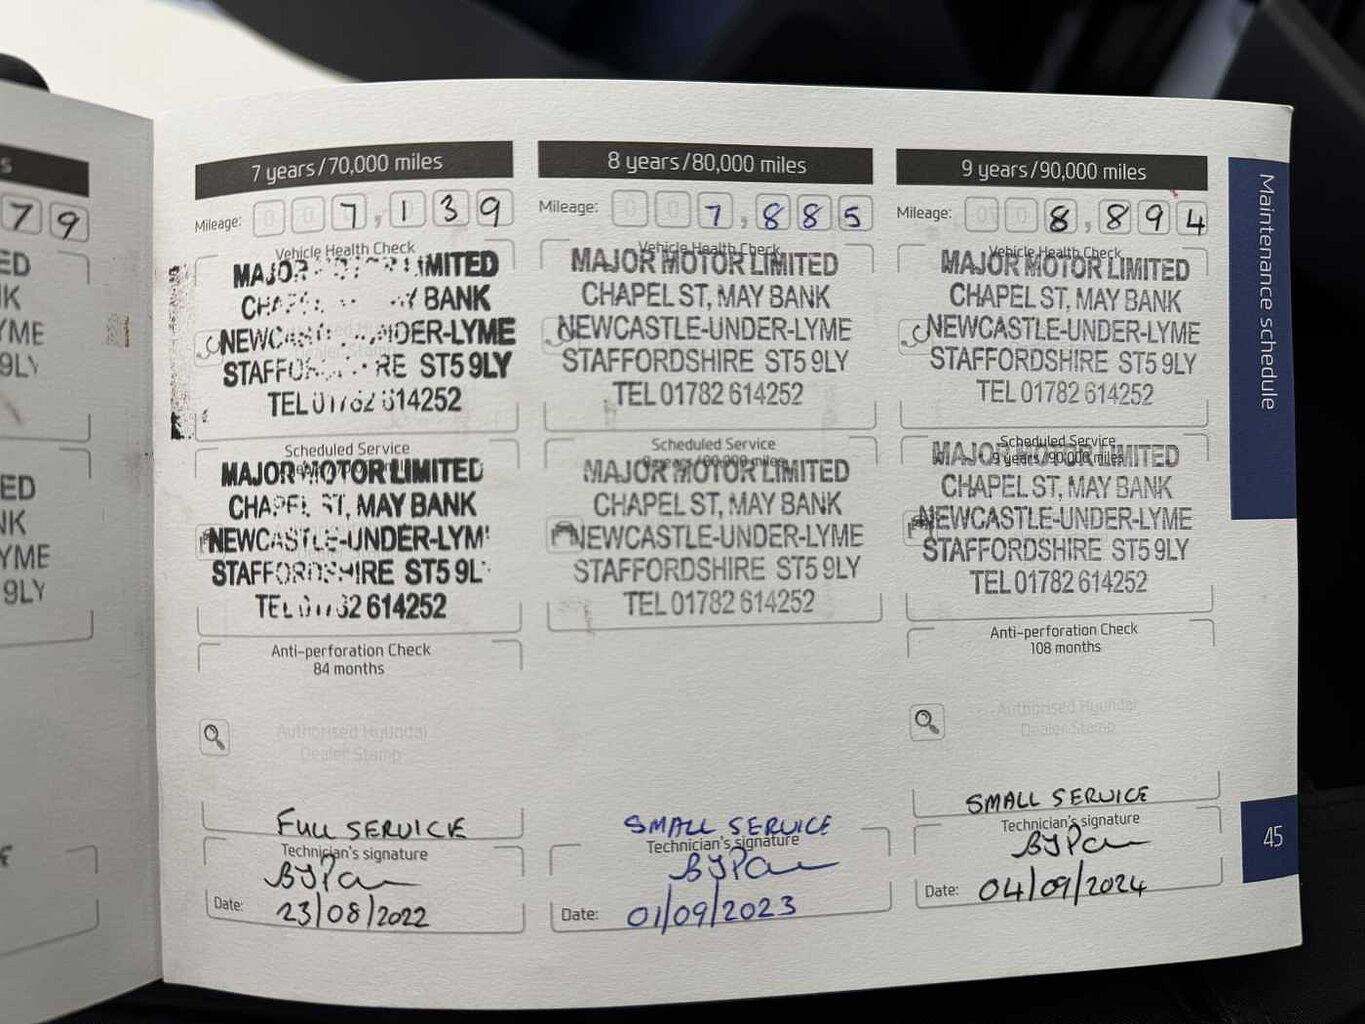 s
79
ED
K
YME
9LY
ED
NK
YME
9LY
E
7 years/70,000 miles
Mileage: 007,139
Vehicle Health Check
MAJOR MOTOR LIMITED
CHAPEL ST, MAY BANK
NEWCASTLE-UNDER-LYME
STAFFORDSHIRE ST5 9LY
TEL 01782 614252
Scheduled Service
MAJOR MOTOR LIMITED
CHAPEL ST, MAY BANK
NEWCASTLE-UNDER-LYM
STAFFORDSHIRE ST5 9L
TEL 01782 614252
Anti-perforation Check
84 months
Authorised Hyundai
Dealer Stamp
FULL SERVICE
Technician's signature
Date: 23/08/2022
8 years/80,000 miles
Mileage: 007,885
Vehicle Health Check
MAJOR MOTOR LIMITED
CHAPEL ST, MAY BANK
NEWCASTLE-UNDER-LYME
STAFFORDSHIRE ST5 9LY
TEL 01782 614252
Scheduled Service
MAJOR MOTOR LIMITED
CHAPEL ST, MAY BANK
NEWCASTLE-UNDER-LYME
STAFFORDSHIRE ST5 9LY
TEL 01782 614252
SMALL SERVICE
Technician's signature
Date: 01/09/2023
9 years/90,000 miles
Mileage: 008,894
Vehicle Health Check
MAJOR MOTOR LIMITED
CHAPEL ST, MAY BANK
NEWCASTLE-UNDER-LYME
STAFFORDSHIRE ST5 9LY
TEL 01782 614252
Scheduled Service
9 years/90,000 miles
MAJOR MOTOR LIMITED
CHAPEL ST, MAY BANK
NEWCASTLE-UNDER-LYME
STAFFORDSHIRE ST5 9LY
TEL 01782 614252
Anti-perforation Check
108 months
Authorised Hyundai
Dealer Stamp
SMALL SERVICE
Technician's signature
Date: 04/09/2024
Maintenance schedule
45